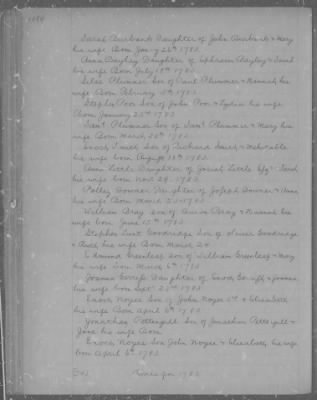 Sarah Burbank Daughter of John Burbank & Mary
his wife Born Jan-y 26th 1783
Anna Bayley Daughter of Ephraim Bayley &
his wife Born July 18th 1783
Silas Plummer Son of Plummer & Hannah his
wife Born February 5th 1783
Stephen Poor Son of John Poor & Lydia his wife
Born January 25th 1783
Saml Plummer Son of Saml Plummer & Mary his
wife Born March 30th 1783
Enoch Smith Son of Richard Smith & Mehetable
his wife Born August 1783
Ann Little Daughter of Josiah Little &
his wife born Novr 1783
Polley Downer Daughter of Joseph Downer &
his wife Born March 20 1783
William Bray Son of Bray & Hannah his
wife born June 15th 1783
Stephen Goodridge Son of Oliver Goodridge
& his wife Born March 24
Edmund Greenleaf Son of William Greenleaf & Mary
his wife Born March 6th 1783
Joanna Gerrish Daughter of Enoch Gerrish & Joanna
his wife born Sept 1783
Enoch Noyes Son of John Noyes & Elisabeth
his wife Born April 6th 1783
Jonathan Pettingill Son of Jonathan Pettingill &
Jane his wife Born
Enoch Noyes Son John Noyes & Elisabeth his wife
born April 6th 1783
for 1783